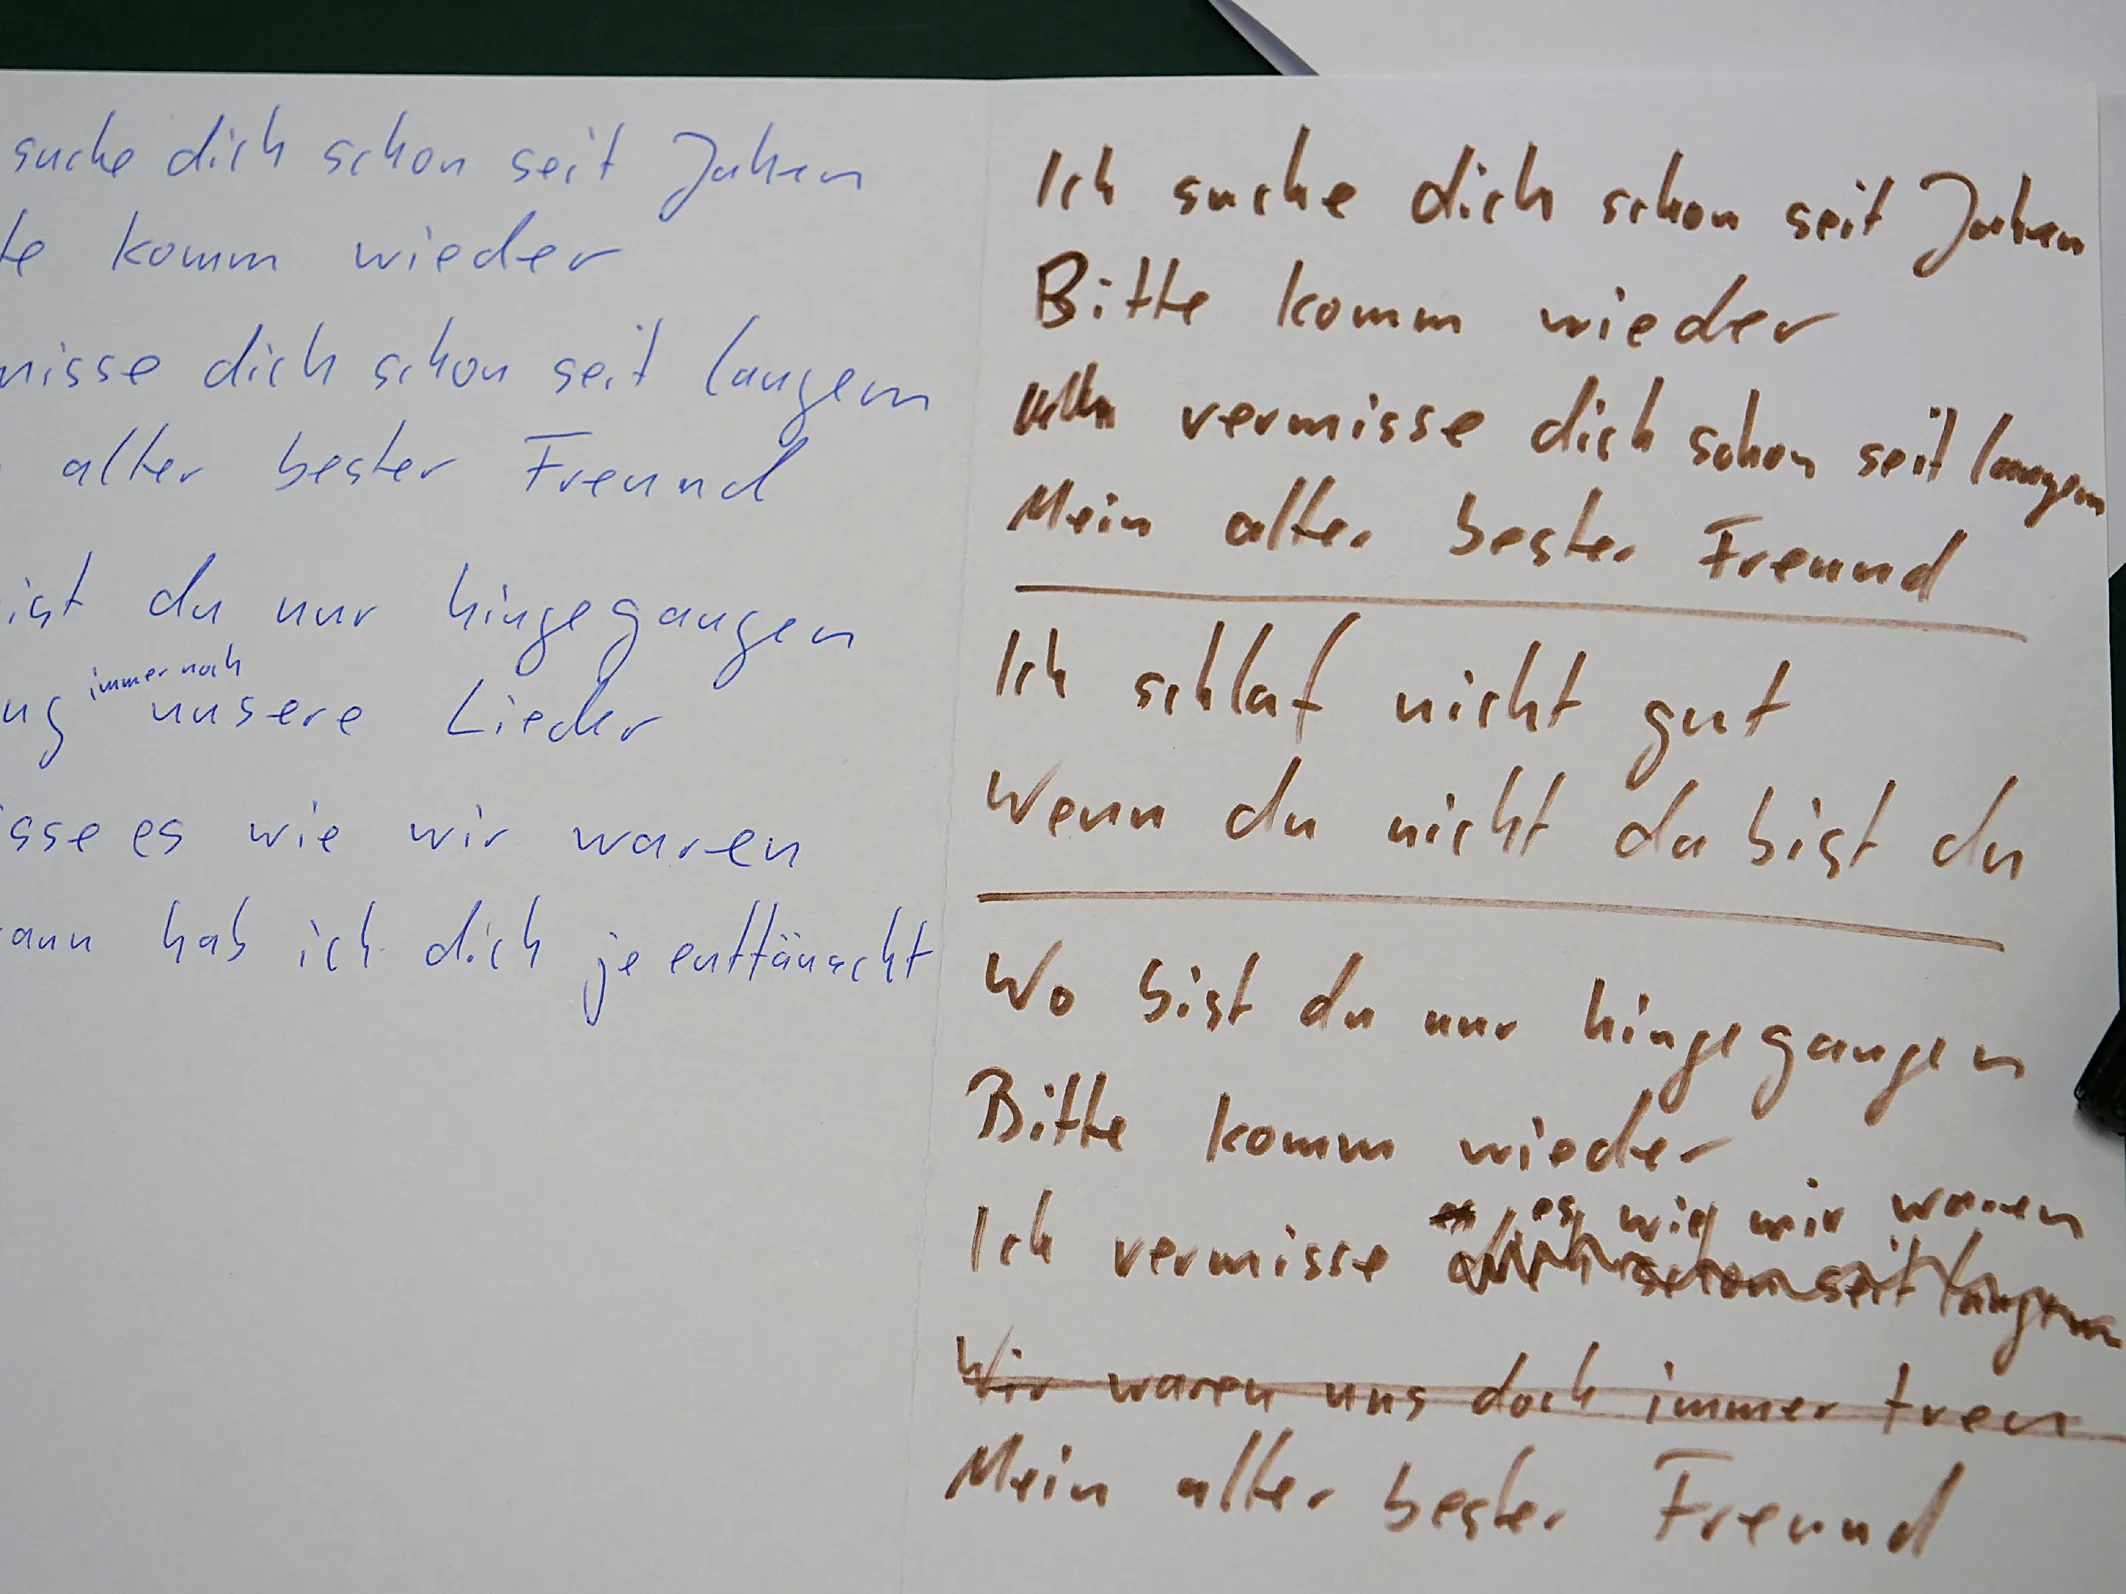 suche dich schon seit Jahren
te komm wieder
misse dich schon seit langem
alter bester Freund
ist du nur hingegangen
immer noch
ng unsere Lieder
isse es wie wir waren
ann hab ich dich je enttäuscht
Ich suche dich schon seit Jahren
Bitte komm wieder
vermisse dich schon seit langem
Mein alter bester Freund
Ich schlaf nicht gut
Wenn du nicht da bist du
Wo bist du nur hingegangen
Bitte komm wieder
es wie wir waren
Ich vermisse dich schon seit langem
Wir waren uns doch immer treu
Mein alter bester Freund